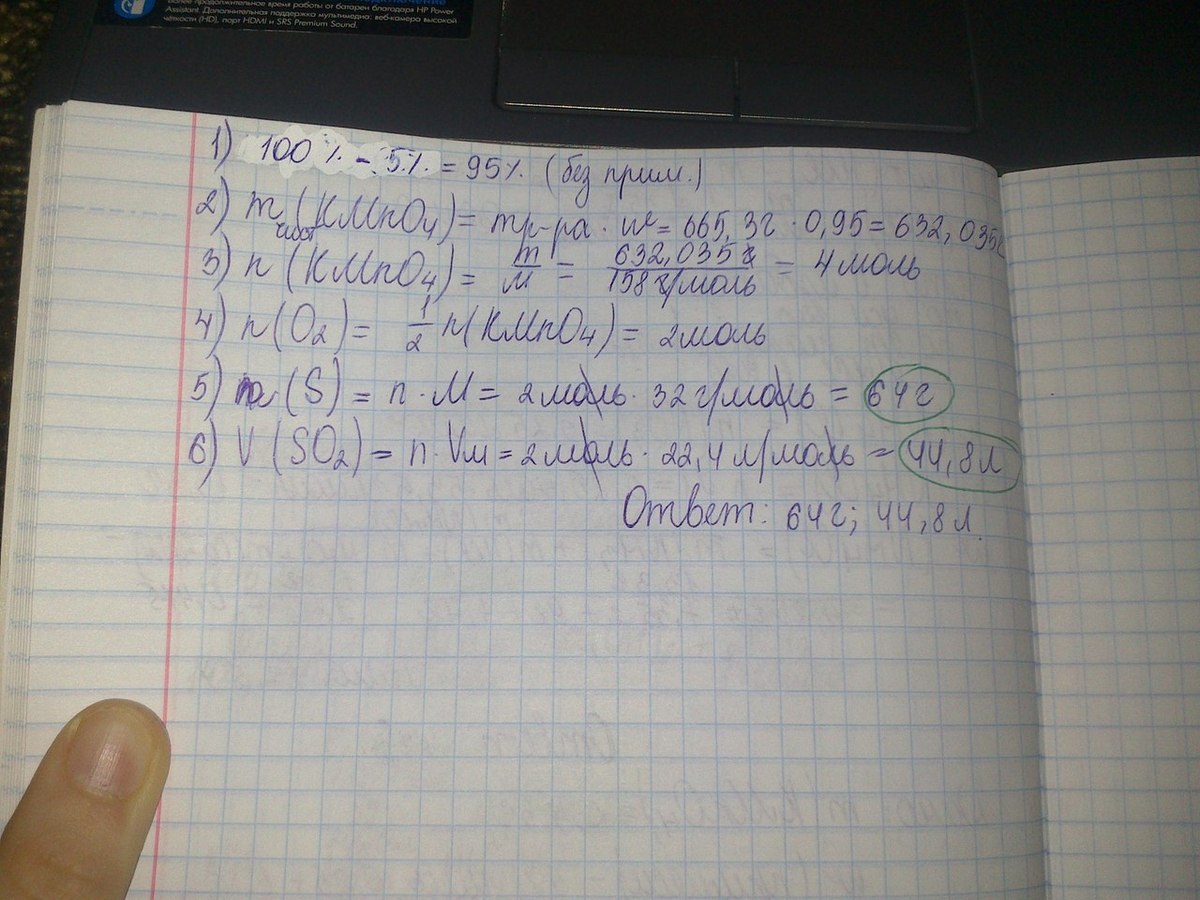 более продолжительное время работы от батареи благодаря HP Power
Assistant. Дополнительная поддержка мультимедиа: веб-камера высокой
чёткости (HD), порт HDMI и SRS Premium Sound.
1) 100% - 5% = 95% (без прим.)
2) m чист (KMnO4) = mр-ра · w = 665,3г · 0,95 = 632,035г
3) n (KMnO4) = m/M = 632,035г/158г/моль = 4моль
4) n(O2) = 1/2 n(KMnO4) = 2моль
5) m (S) = n · M = 2моль · 32г/моль = 64г
6) V (SO2) = n · Vм = 2моль · 22,4л/моль = 44,8л
Ответ: 64г; 44,8л.